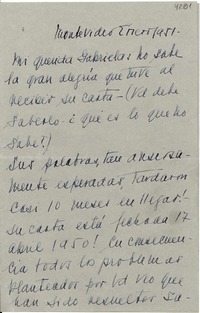 4281
Montevideo Enero 1951.
Mi querida Gabriela: No sabe
la gran alegría que tuve al
recibir su carta - (Vd debe
saberlo - ¿qué es lo que no
sabe?)
Sus palabras, tan ansiosa-
mente esperadas, tardaron
casi 10 meses en llegar!
Su carta está fechada 17
abril 1950! En consecuen-
cia todos los problemas
planteados por Vd veo que
han sido resueltos